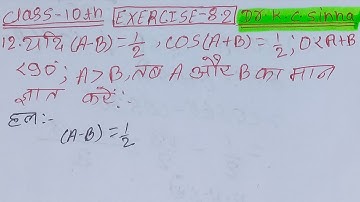 CLASS-10th EXERCISE-8.2 Dr. K.C. Sinha
12. यदि (A-B)=1/2, COS(A+B)=1/2; 0<A+B
<90; A>B, तब A और B का मान
ज्ञात करें:-
हल:-
(A-B)=1/2